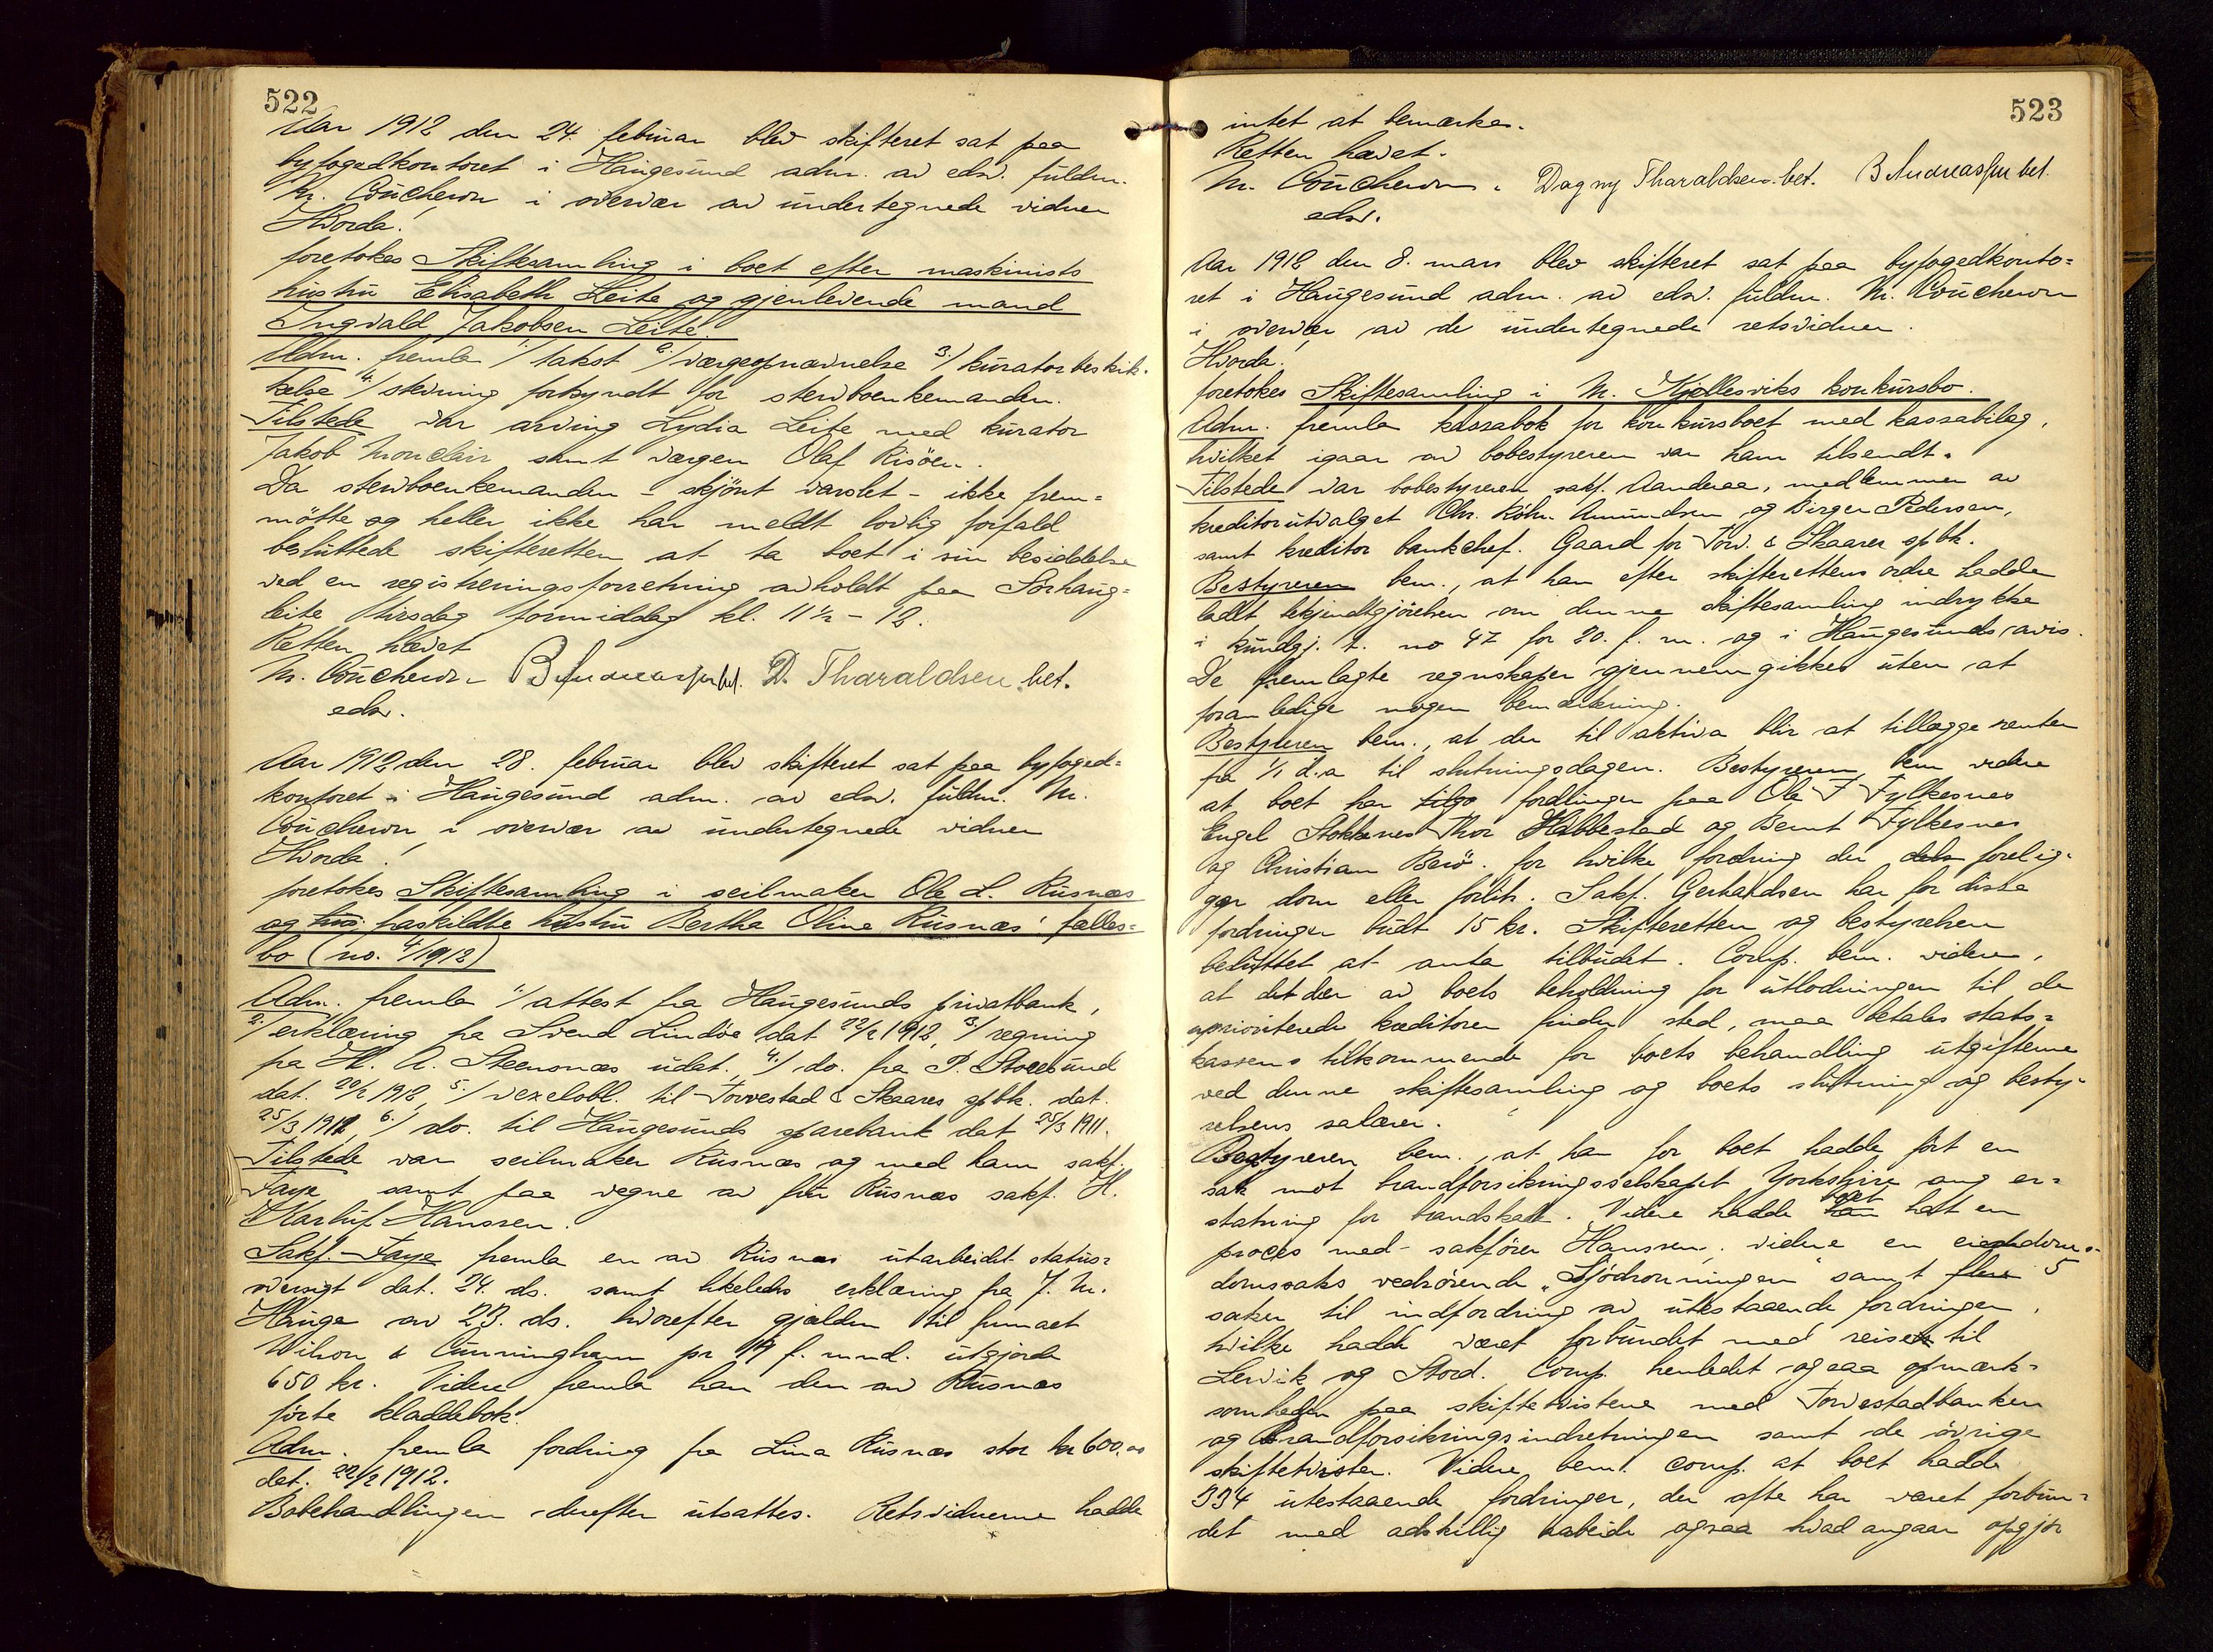 522
Aar 1912 den 24. februar blev skifteret sat paa
byfogedkontoret i Haugesund adm. av edsv. fuldm.
M. Coucheron i overvær av undertegnede vidner
Hvorda!
foretokes Skiftesamling i boet efter maskinists
hustru Elisabeth Leite og gjenlevende mand
Ingvald Jakobsen Leite.
Adm. fremla 1/ takst 2/ værgeopnævnelse 3/ kuratorbeskik-
kelse 4/ stevning forkyndt for stervboenkemanden.
Tilstede var arving Lydia Leite med kurator
Jakob Monclair samt værgen Olaf Risöen.
Da stervboenkemanden - skjönt varslet - ikke frem-
mötte og heller ikke har meldt lovlig forfald
besluttede skifteretten at ta boet i sin besiddelse
ved en registreringsforretning avholdt paa Sörhaug-
leite tirsdag formiddag kl. 11 1/2 - 12.
Retten hævet
M. Coucheron B Andreassen bet. D. Tharaldsen bet.
edsv.
Aar 1912 den 28. februar blev skifteret sat paa byfoged-
kontoret i Haugesund adm. av edsv. fuldm. M.
Coucheron i overvær av undertegnede vidner
Hvorda!
foretokes Skiftesamling i seilmaker Ole L. Risnæs
og hus. fraskildte hustru Bertha Oline Risnæs' fælles-
bo (no. 4/1912)
Adm. fremla 1/ attest fra Haugesunds privatbank,
2/ erklæring fra Svend Lindöe dat 22/2 1912, 3/ regning
fra H. A. Steensnæs udat., 4/ do. fra P. Storesund
dat. 20/2 1912, 5/ vexelobl. til Torvestad & Skaares spbk. dat.
25/3 1911, 6/ do. til Haugesunds sparebank dat 25/3 1911.
Tilstede var seilmaker Risnæs og med ham sakf.
Faye samt paa vegne av fru Risnæs sakf. H.
Karluf Hanssen.
Sakf. Faye fremla en av Risnæs utarbeidet status-
oversigt dat. 24. ds. samt likeledes erklæring fra J. M.
Hauge av 23. ds. hvorefter gjælden til firmaet
Wilson & Cunningham pr 19 f. mnd. utgjorde
650 kr. Videre fremla han den av Risnæs
förte kladdebok.
Adm. fremla fordring fra Lina Risnæs stor kr 600,00
dat. 22/2 1912.
Bobehandlingen derefter utsattes. Retsvidnerne hadde
523
intet at bemærke.
Retten hævet.
M. Coucheron. Dagny Tharaldsen bet. B Andreassen bet.
edsv.
Aar 1912 den 8. mars blev skifteret sat paa byfogedkonto-
ret i Haugesund adm. av edsv. fuldm. M. Coucheron
i overvær av de undertegnede retsvidner.
Hvorda!
foretokes Skiftesamling i M. Kjellesviks konkursbo.
Adm. fremla kassabok for konkursboet med kassabilag,
hvilket igaar av bobestyreren var ham tilsendt.
Tilstede var bobestyreren sakf. Aanderaa, medlemmer av
kreditorutvalget Chr. Amundsen og Birger Pedersen,
samt kreditor bankchef. Gaard for Torv. & Skaares spbk.
Bestyreren bem., at han efter skifterettens ordre hadde
ladt bekjendtgjörelsen om denne skiftesamling indrykke
i kundgj. t. no 47 for 20. f. m. og i Haugesunds avis.
De fremlagte regnskaper gjennemgikkes uten at
foranledige nogen bemerkning.
Bestyreren bem., at der til aktiva blir at tillægge renter
fra 1/1 d.a til slutningsdagen. Bestyreren bem videre
at boet har tilgo fordringer paa Ole T Fylkesnes
Engel Stokkenes Thor Habbestad og Bernt Fylkesnes
og Christian Berö. for hvilke fordring der dels forelig-
ger dom eller forlik. Sakf. Gerhardsen har for disse
fordringer budt 15 kr. Skifteretten og bestyrelsen
besluttet at anta tilbudet. Comp. bem. videre,
at det der av boets beholdning for utlodningen til de
uprioriterede kreditorer finder sted, maa betales stats-
kassens tilkommende for boets behandling utgifterne
ved denne skiftesamling og boets slutning og besty-
relsens salærer.
Bestyreren bem., at han for boet hadde fört en
sak mot brandforsikringsselskapet Yorkshire ang er-
statning for brandskade. Videre hadde han boet hat en
proces med sakförer Hanssen, videre en eiendoms-
domssaks vedrörende „Sjödronningen" samt flere 5
saker til indfordring av utestaaende fordringer,
hvilke hadde været forbundet med reiser til
Lervik og Stord. Comp. henledet ogsaa opmærk-
somheden paa skiftetvistene med Torvestadbanken
og Brandforsikringsindretningen samt de övrige
skiftetvister. Videre bem. comp. at boet hadde
334 utestaaende fordringer, der ofte har været forbun-
det med adskillig arbeide ogsaa hvad angaar opgjör